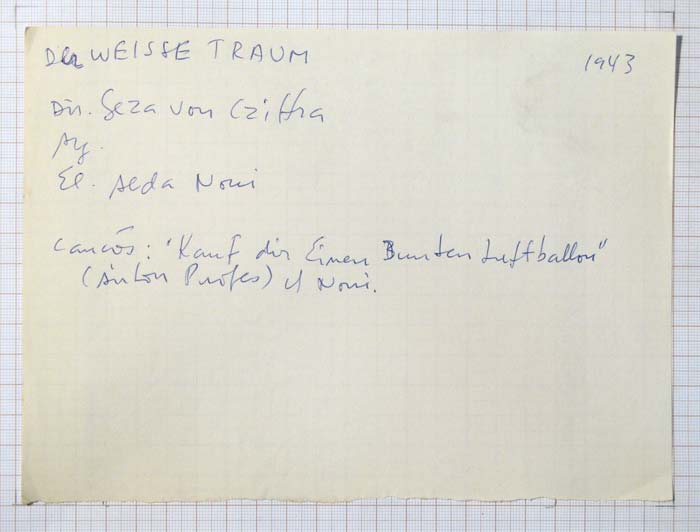 Der WEISSE TRAUM 1943
Dir. Geza von Cziffra
Ag.
El. Alda Noni
Canções: "Kauf dir Einen Bunten Luftballon"
(Anton Profes) c/ Noni.